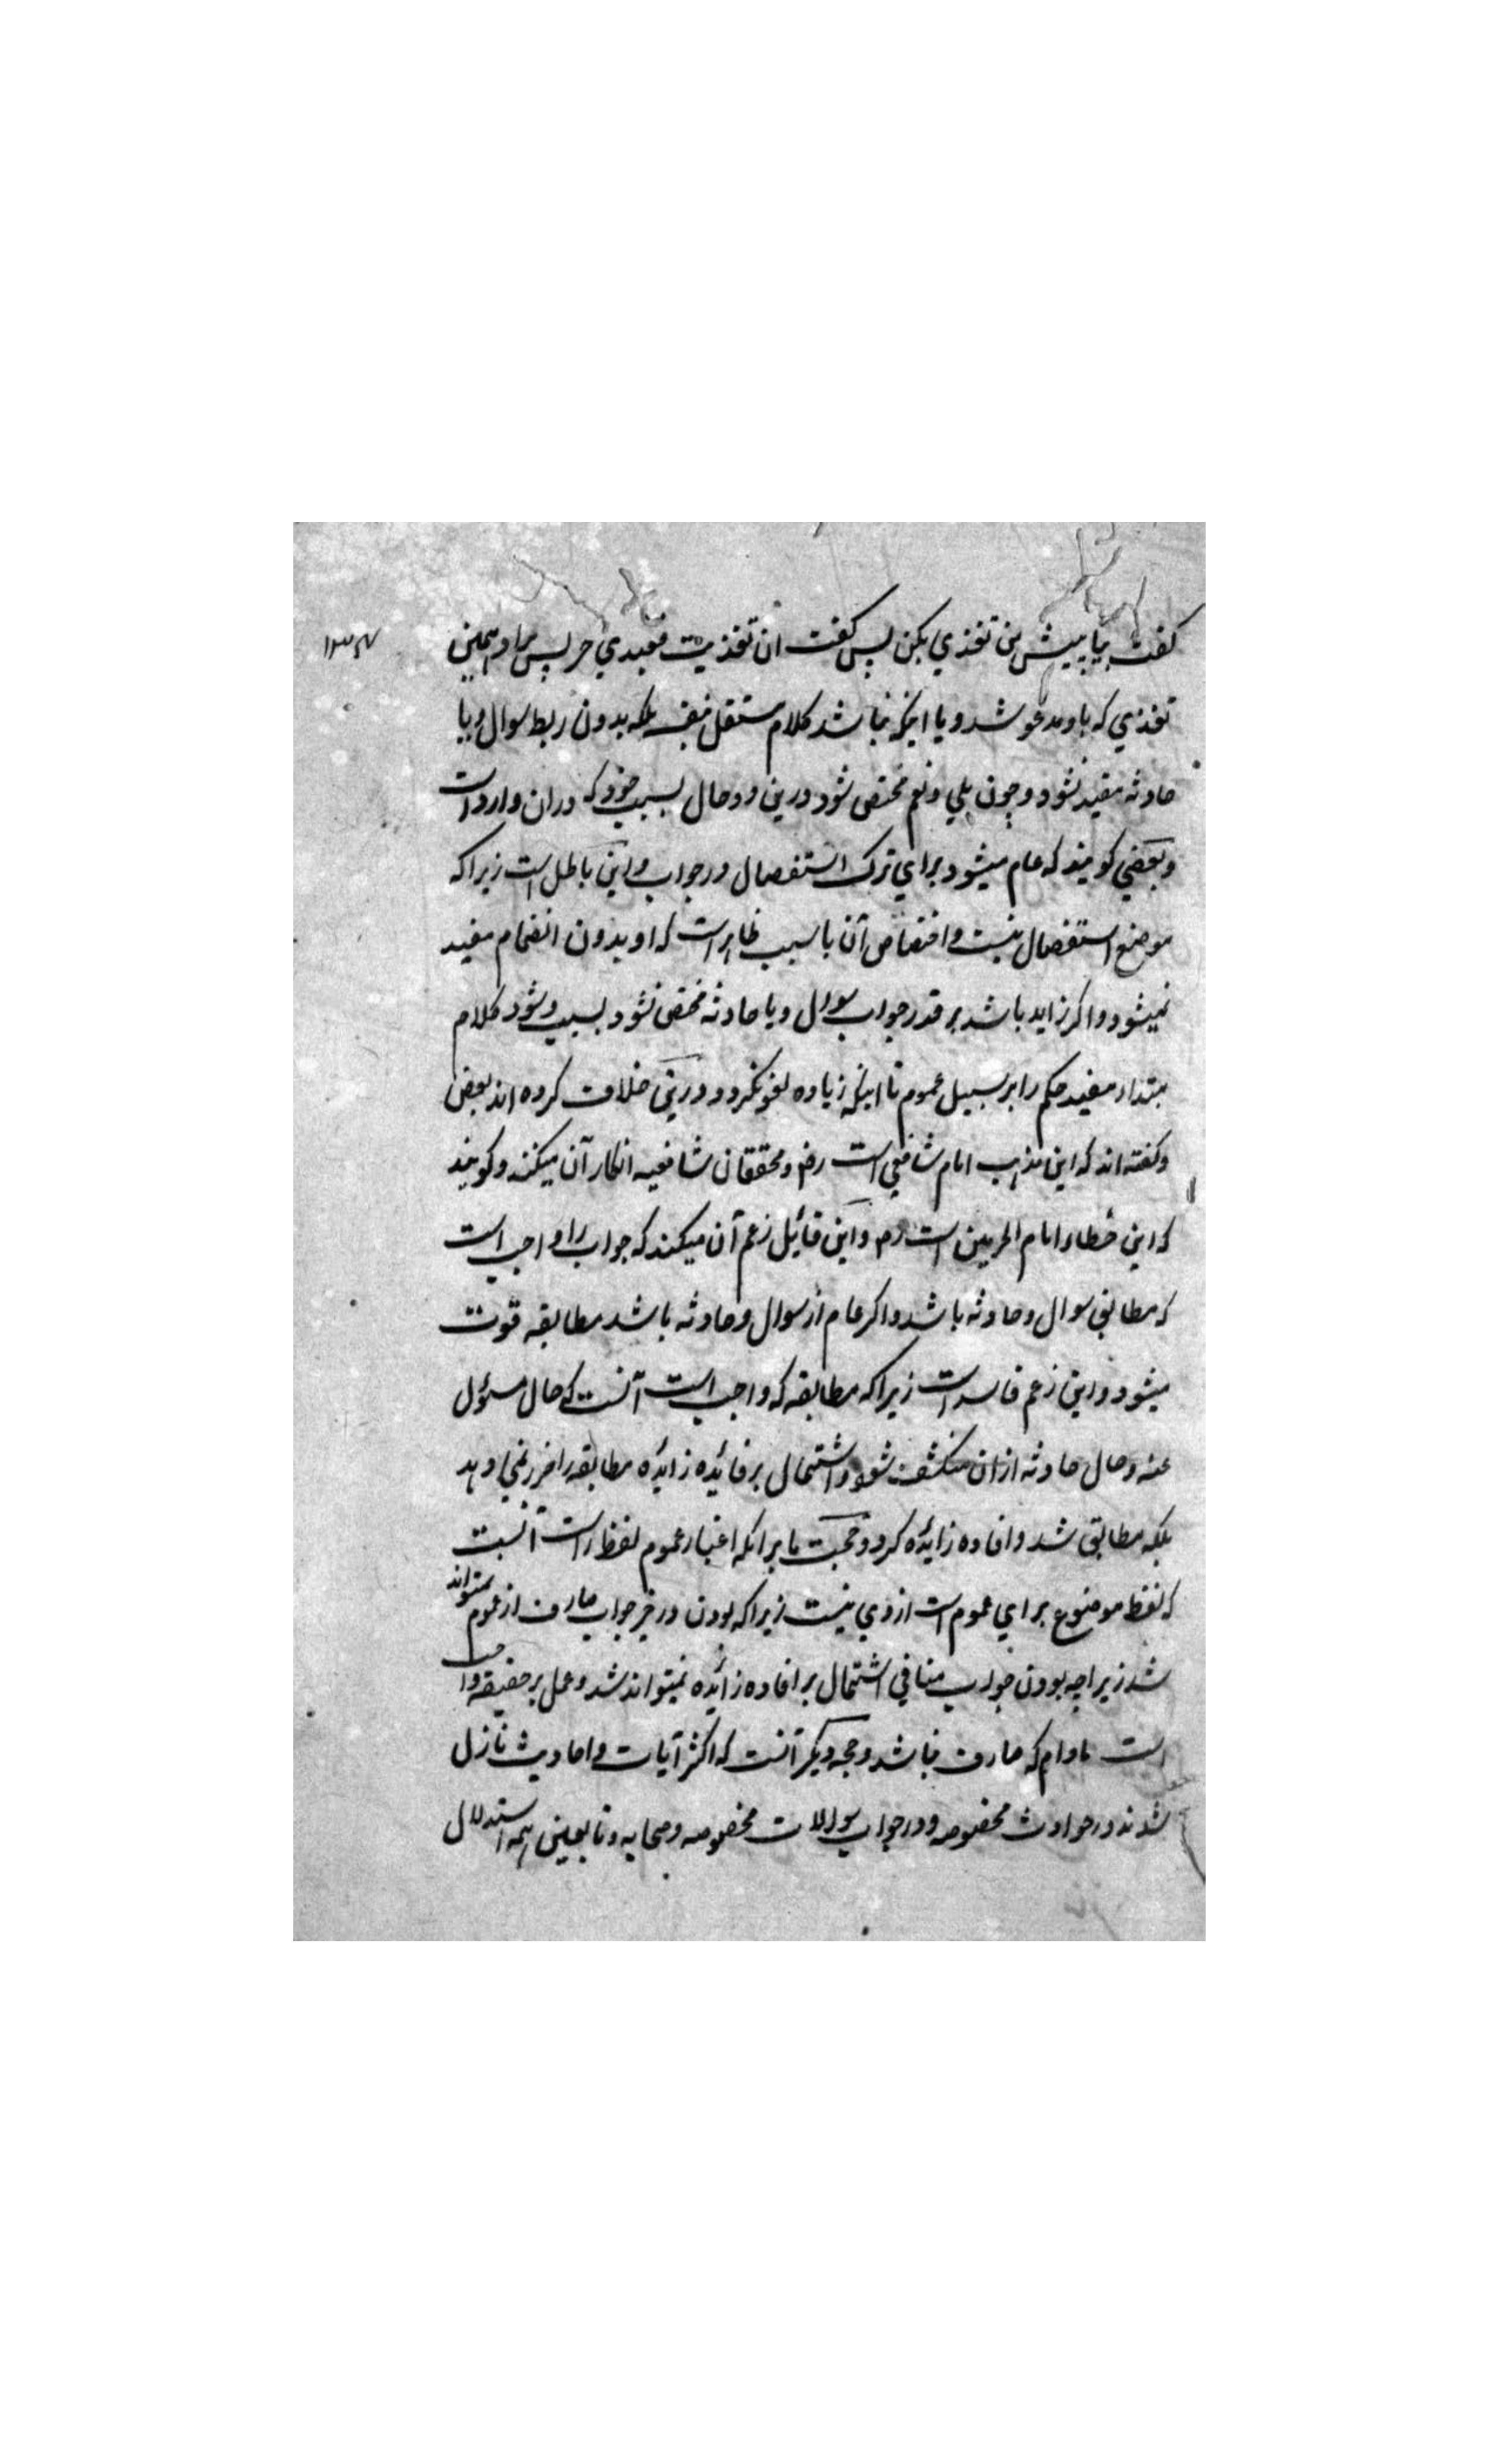 ۱۳۴
كفت بيا پيش من تغذي بكن پس كفت ان تغذيت فعبدي حر پس مراد همين
تغذي كه با و مدعو شد و يا اينكه نباشد كلام مستقل بنفسه بلكه بدون ربط سوال و يا
حادثه مفيد نشود و چون بلي و نعم مختص شود درين دو حال بسبب خود كه دران وارد است
و بعضي كويند كه عام ميشود براي ترك استفصال در جواب و اين باطل است زيرا كه
موضع استفصال نيست و اختصاص آن با سبب ظاهر است كه او بدون انضمام مفيد
نميشود و اكر زايد باشد بر قدر جواب سوال و يا حادثه مختص نشود بسبب و شود كلام
مبتداء مفيد حكم را بر سبيل عموم تا اينكه زياده لغو نكردد و درين خلاف كرده اند بعض
و كفته اند كه اين مذهب امام شافعي است رض و محققان شافعيه انكار آن ميكنند و كويند
كه اين خطاء امام الحرمين است رح و اين قائل زعم آن ميكند كه جواب را واجب است
كه مطابق سوال و حادثه باشد و اكر عام از سوال و حادثه باشد مطابقه فوت
ميشود و اين زعم فاسد است زيرا كه مطابقه كه واجب است آنست كه حال مسؤل
عنه و حال حادثه ازان منكشف شود و اشتمال بر فائده زائده مطابقه را ضرر نمي دهد
بلكه مطابق شد و افاده زائده كرد و حجت ما برانكه اعتبار عموم لفظ راست آنست
كه لفظ موضوع براي عموم است ازوي نيست زيرا كه بودن در خير جواب صارف از عموم نميتواند
شد زيرا چه بودن جواب منافي اشتمال بر افاده زائده نميتواند شد و عمل بر حقيقه واجب
است مادام كه صارف نباشد و حجه ديكر آنست كه اكثر آيات و احاديث نازل
شدند در حوادث مخصوصه و در جواب سوالات مخصوصه و صحابه و تابعين همه استدلال